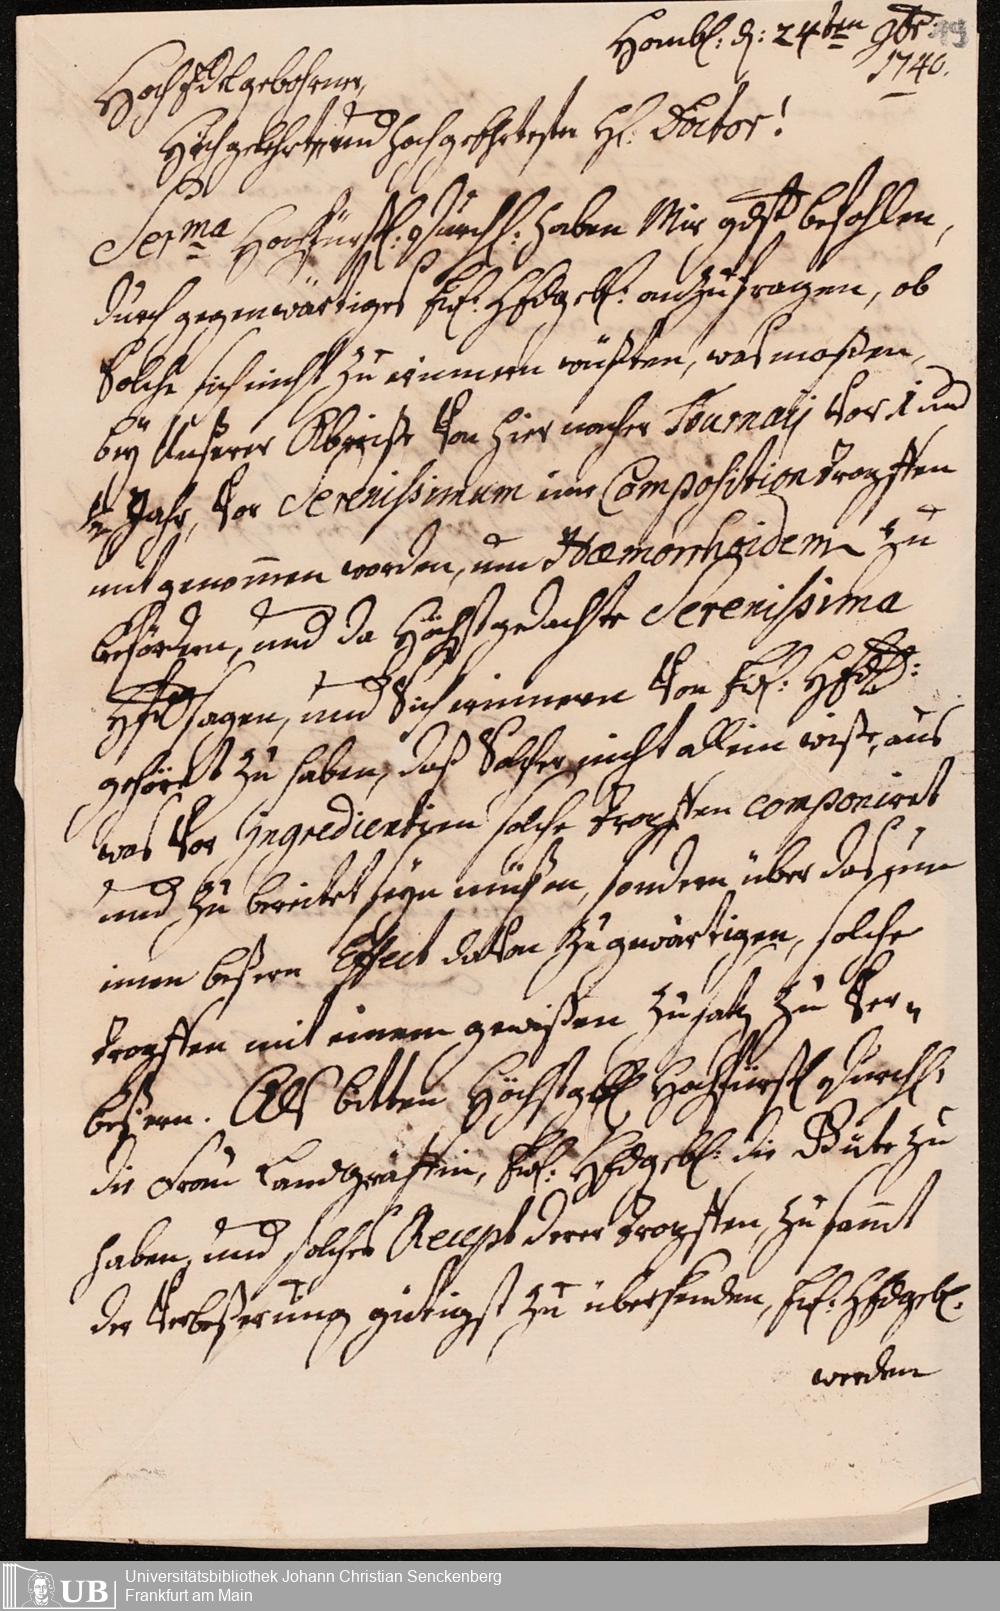 Hombl: d: 24ten 9br: 49
1740.
HochEdelgebohrner,
Hochgelehrter, und hochgeEhrtester H: Doctor!
Serma Hochfürstl: Durchl: haben Mir gdst befohlen,
durch gegenwärtiges Ew: HEdgeb: anzufragen, ob
Solche sich nicht zu erinnern wüsten, was maßen,
bey Unserer Abreiße von hier nacher Tournay vor 1 und
Jahr, vor Serenissimum eine Composition tropffen
mitgenommen worden, um Haemorrhoidem zu
befördern, und da Höchstgedachte Serenissima
sagen, und Sich erinnern von Ew: HEd:
gehöret zu haben, daß Solcher nicht allein wiße, aus
was vor Ingredientien solche tropffen componiret
und zu bereitet seyn müßen, sondern über das um
einen beßern Effect davon zu gewärtigen, solche
tropffen mit einem gewißen Zusatz zu ver-
beßern. Als bitten Höchstgd Hochfürstl Durchl:
die Frau Landgräffin, Ew: HEdgeb: die Güte zu
haben, und solches Recept derer tropffen, zu sammt
der Verbeßerung gütigst zu übersenden, Ew: HEdgeb:
werden
UB Universitätsbibliothek Johann Christian Senckenberg
Frankfurt am Main